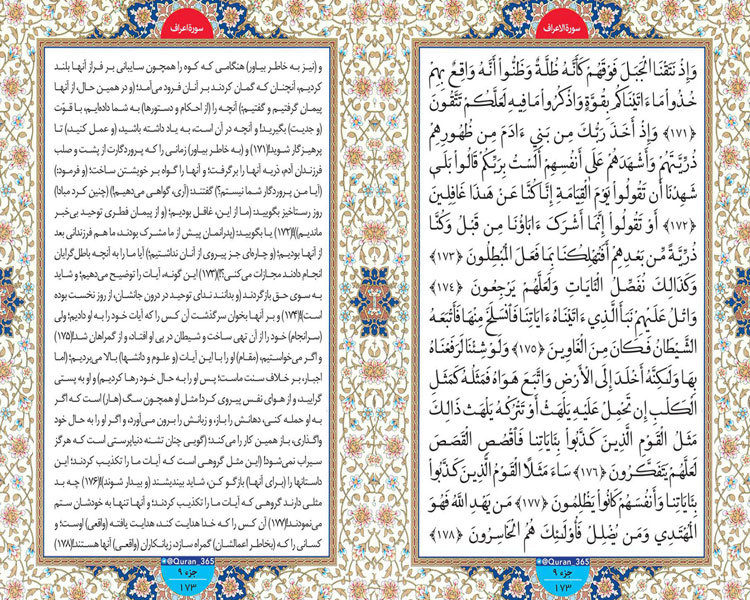 سورة الاعراف
وَإِذ نَتَقْنَا الْجَبَلَ فَوْقَهُمْ كَأَنَّهُ ظُلَّةٌ وَظَنُّواْ أَنَّهُ وَاقِعٌ بِهِمْ
خُذُواْ مَا ءَاتَيْنَاكُم بِقُوَّةٍ وَاذْكُرُواْ مَا فِيهِ لَعَلَّكُمْ تَتَّقُونَ
﴿۱۷۱﴾ وَإِذْ أَخَذَ رَبُّكَ مِن بَنِي ءَادَمَ مِن ظُهُورِهِمْ
ذُرِّيَّتَهُمْ وَأَشْهَدَهُمْ عَلَى أَنفُسِهِمْ أَلَسْتُ بِرَبِّكُمْ قَالُواْ بَلَى
شَهِدْنَا أَن تَقُولُواْ يَوْمَ الْقِيَامَةِ إِنَّا كُنَّا عَنْ هَذَا غَافِلِينَ
﴿۱۷۲﴾ أَوْ تَقُولُواْ إِنَّمَا أَشْرَكَ ءَابَاؤُنَا مِن قَبْلُ وَكُنَّا
ذُرِّيَّةً مِّن بَعْدِهِمْ أَفَتُهْلِكُنَا بِمَا فَعَلَ الْمُبْطِلُونَ ﴿۱۷۳﴾
وَكَذَالِكَ نُفَصِّلُ الْآيَاتِ وَلَعَلَّهُمْ يَرْجِعُونَ ﴿۱۷۴﴾
وَاتْلُ عَلَيْهِمْ نَبَأَ الَّذِي ءَاتَيْنَاهُ ءَايَاتِنَا فَانسَلَخَ مِنْهَا فَأَتْبَعَهُ
الشَّيْطَانُ فَكَانَ مِنَ الْغَاوِينَ ﴿۱۷۵﴾ وَلَوْ شِئْنَا لَرَفَعْنَاهُ
بِهَا وَلَكِنَّهُ أَخْلَدَ إِلَى الْأَرْضِ وَاتَّبَعَ هَوَاهُ فَمَثَلُهُ كَمَثَلِ
الْكَلْبِ إِن تَحْمِلْ عَلَيْهِ يَلْهَثْ أَوْ تَتْرُكْهُ يَلْهَث ذَالِكَ
مَثَلُ الْقَوْمِ الَّذِينَ كَذَّبُواْ بِئَايَاتِنَا فَاقْصُصِ الْقَصَصَ
لَعَلَّهُمْ يَتَفَكَّرُونَ ﴿۱۷۶﴾ سَاءَ مَثَلًا الْقَوْمُ الَّذِينَ كَذَّبُواْ
بِئَايَاتِنَا وَأَنفُسَهُمْ كَانُواْ يَظْلِمُونَ ﴿۱۷۷﴾ مَن يَهْدِ اللَّهُ فَهُوَ
الْمُهْتَدِي وَمَن يُضْلِلْ فَأُوْلَئِكَ هُمُ الْخَاسِرُونَ ﴿۱۷۸﴾
@Quran_365
جزء ۹
۱۷۳
سورة اعراف
و (نیز به خاطر بیاور) هنگامی که کوه را همچون سایبانی بر فراز آنها بلند
کردیم، آنچنان که گمان کردند بر آنان فرود می‌آمد؛ و در همین حال، از آنها
پیمان گرفتیم و گفتیم:) آنچه را (از احکام و دستورها) به شما داده‌ایم، با قوّت
(و جدیت) بگیرید! و آنچه در آن است، به یاد داشته باشید، (و عمل کنید،) تا
پرهیزگار شوید!(۱۷۱) و (به خاطر بیاور) زمانی را که پروردگارت از پشت و صلب
فرزندان آدم، ذریه آنها را برگرفت؛ و آنها را گواه بر خویشتن ساخت؛ (و فرمود:)
(آیا من پروردگار شما نیستم؟) گفتند: (آری، گواهی می‌دهیم!) (چنین کرد مبادا)
روز رستاخیز بگویید: (ما از این، غافل بودیم؛ (و از پیمان فطری توحید بی‌خبر
ماندیم))!(۱۷۲) یا بگویید: (پدرانمان پیش از ما مشرک بودند، ما هم فرزندانی بعد
از آنها بودیم؛ (و چاره‌ای جز پیروی از آنان نداشتیم؛) آیا ما را به آنچه باطل‌گرایان
انجام دادند مجازات می‌کنی؟!)(۱۷۳) این گونه، آیات را توضیح می‌دهیم؛ و شاید
به سوی حق بازگردند (و بدانند ندای توحید در درون جانشان، از روز نخست بوده
است)!(۱۷۴) و بر آنها بخوان سرگذشت آن کس را که آیات خود را به او دادیم؛ ولی
(سرانجام) خود را از آن تهی ساخت و شیطان در پی او افتاد، و از گمراهان شد!(۱۷۵)
و اگر می‌خواستیم، (مقام) او را با این آیات (و علوم و دانشها) بالا می‌بردیم؛ (اما
اجبار، بر خلاف سنت ماست؛ پس او را به حال خود رها کردیم) و او به پستی
گرایید، و از هوای نفس پیروی کرد! مثل او همچون سگ (هار) است که اگر
به او حمله کنی، دهانش را باز، و زبانش را برون می‌آورد، و اگر او را به حال خود
واگذاری، باز همین کار را می‌کند؛ (گویی چنان تشنه دنیاپرستی است که هرگز
سیراب نمی‌شود! (این مثل گروهی است که آیات ما را تکذیب کردند؛ این
داستانها را (برای آنها) بازگو کن، شاید بیندیشند (و بیدار شوند)!(۱۷۶) چه بد
مثلی دارند گروهی که آیات ما را تکذیب کردند؛ و آنها تنها به خودشان ستم
می‌نمودند!(۱۷۷) آن کس را که خدا هدایت کند، هدایت یافته (واقعی) اوست؛ و
کسانی را که (بخاطر اعمالشان) گمراه سازد، زیانکاران (واقعی) آنها هستند!(۱۷۸)
@Quran_365
جزء ۹
۱۷۳